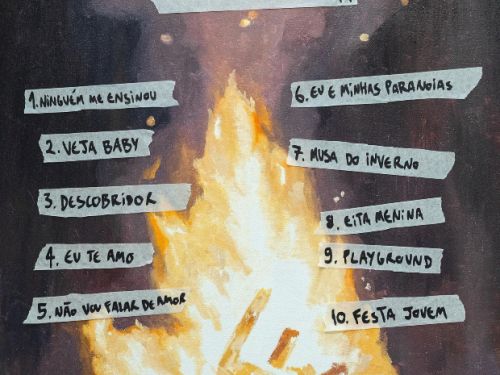 1. NINGUÉM ME ENSINOU
2. VEJA BABY
3. DESCOBRIDOR
4. EU TE AMO
5. NÃO VOU FALAR DE AMOR
6. EU E MINHAS PARANOIAS
7. MUSA DO INVERNO
8. EITA MENINA
9. PLAYGROUND
10. FESTA JOVEM